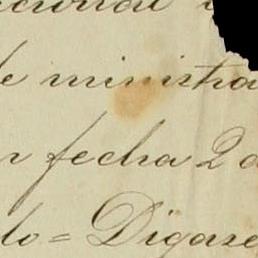 e ministra
fecha 2 d
do = Digase